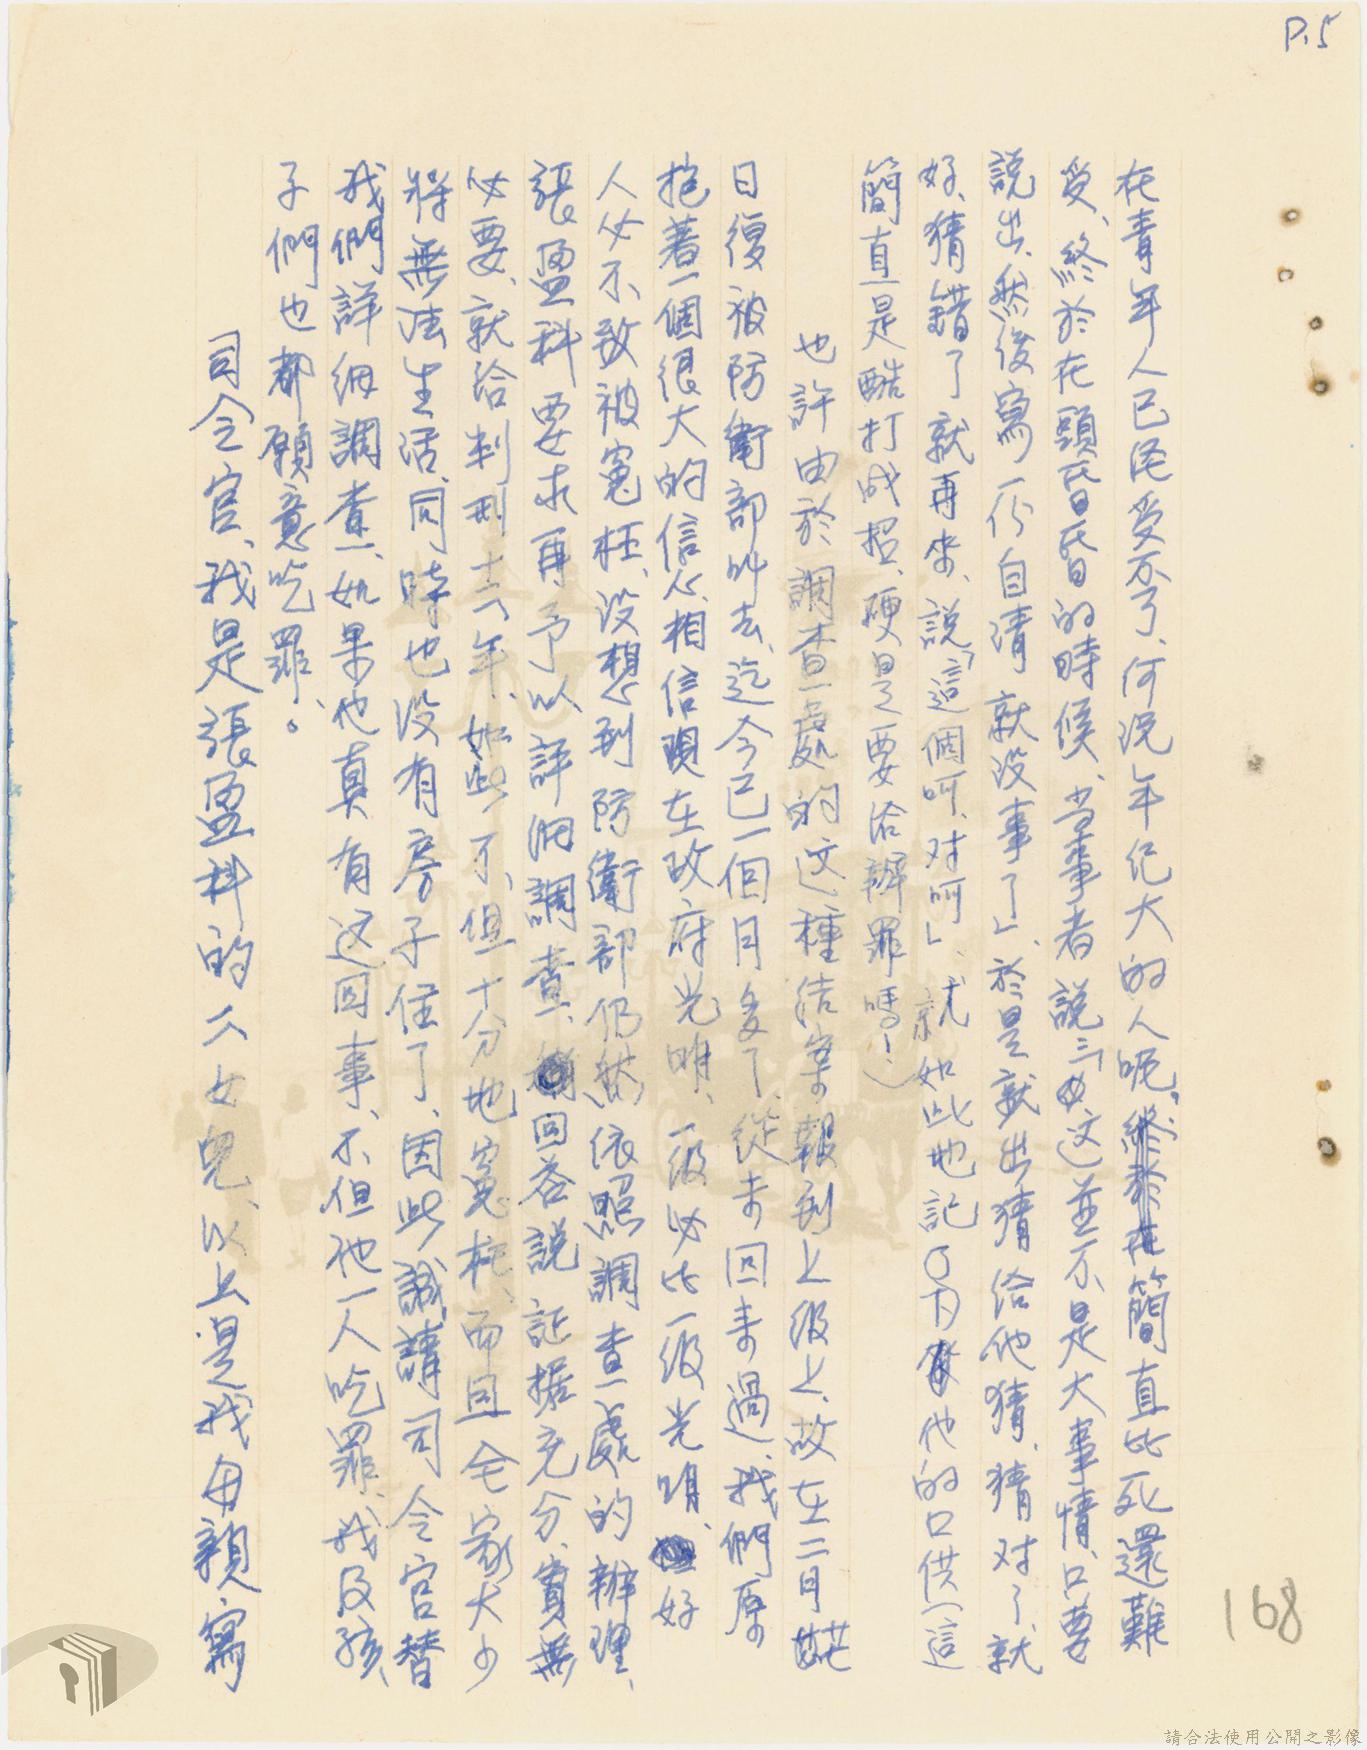 P.5
在青年人已經受不了、何況年纪大的人呢。簡直比死還難
受、終於在頭昏昏的時候、当事者說：「这並不是大事情、只要
說出、然後寫一份自清就没事了」、於是就出猜給他猜、猜对了就
好、猜錯了就再來、說「這個呵、对呵」、就如此地記了下來他的口供（這
簡直是酷打成招、硬是要給辦罪嗎！）
也許由於調查處的这種结案報到上级上、故在二月
日復被防衛部叫去、迄今已一個月多了、從未回来過、我們原
抱着一個很大的信心、相信現在政府光明、一級必比一級光明、好
人必不致被寃枉、没想到防衛部仍然依照調查處的辦理、
張盈科要求再予以詳細調查、回答說証据充分、實無
必要、就給判刑十六年、如此、不但十分地寃枉、而且全家大少
將無法生活、同時也没有房子住了、因此誠請司令官替
我們詳細調查、如果他真有这回事、不但他一人吃罪、我及孩
子們也都願意吃罪、。
司令官、我是張盈科的二女兒、以上是我母親寫
168
請合法使用公開之影像